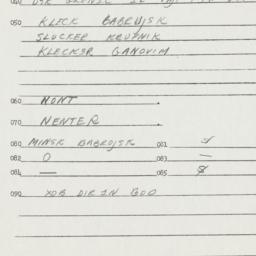 050 KLECK BABRUJSK
SLUCKER KRUPNIK
KLECKER GANOVIM
060 NONT .
070 NENTER .
080 MINSK BABROJSK 081
082 O 083 —
084 — 085
090 XOB DIR IN BOD